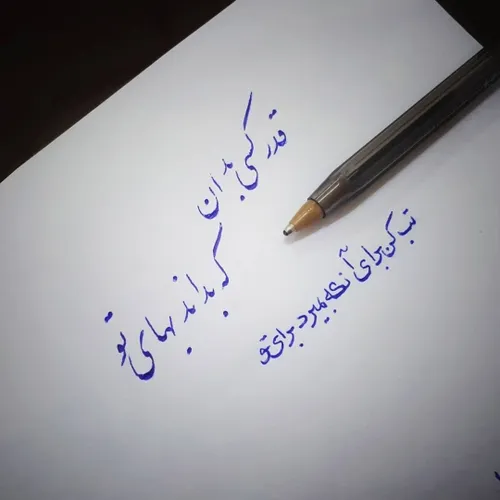 قدر کسی بدان
که بداند بهای تو
تب کن برای آنکه بمیرد برای تو